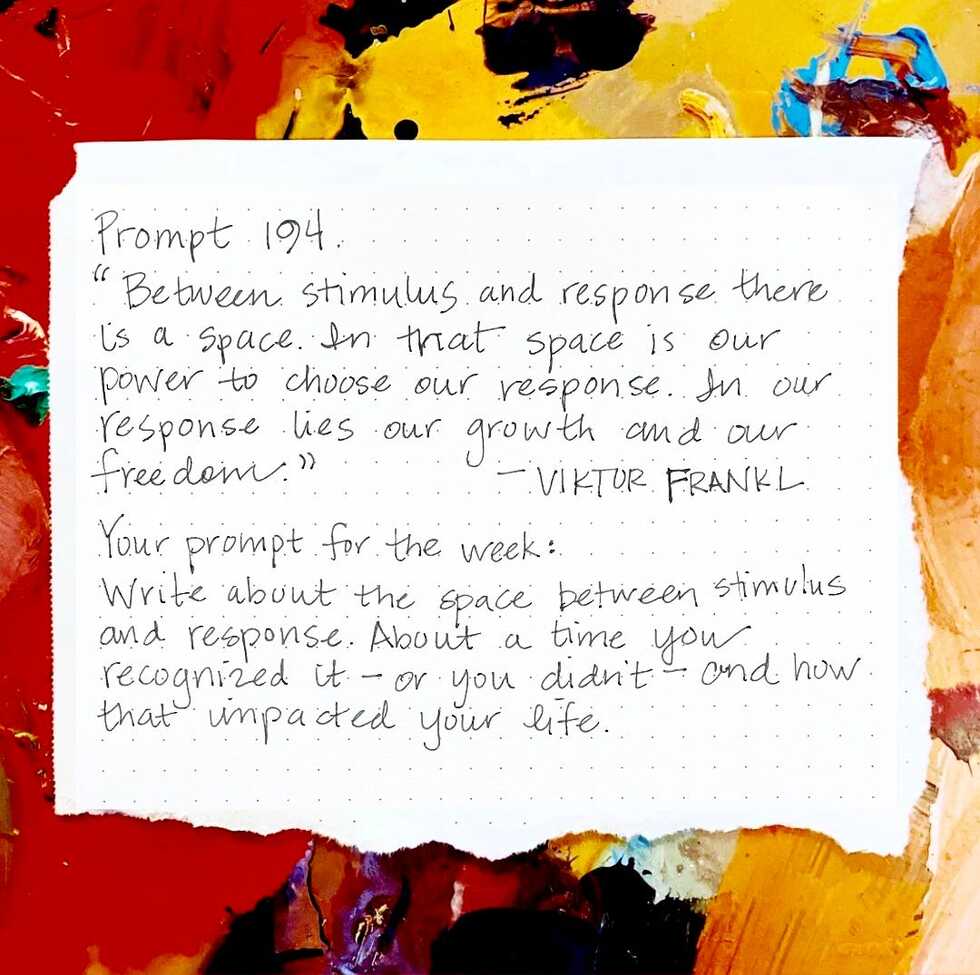 Prompt 194.
“Between stimulus and response there
is a space. In that space is our
power to choose our response. In our
response lies our growth and our
freedom.” — VIKTOR FRANKL
Your prompt for the week:
Write about the space between stimulus
and response. About a time you
recognized it – or you didn't – and how
that impacted your life.